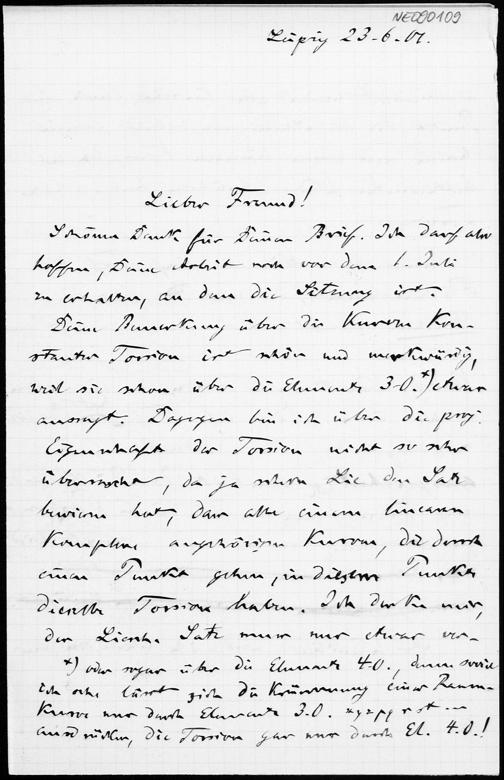 NE090109
Leipzig 23-6-07.
Lieber Freund!
Schönen Dank für Deinen Brief. Ich darf also
hoffen, Deine Arbeit noch vor dem 1. Juli
zu erhalten, an dem die Sitzung ist.
Deine Bemerkung über die Kurven kon-
stanter Torsion ist schön und merkwürdig,
weil sie schon über die Elemente 3.O.*) etwas
aussagt. Dagegen bin ich über die proj.
Eigenschaft der Torsion nicht so sehr
überrascht, da ja schon Lie den Satz
bewiesen hat, dass alle einem linearen
Komplexe angehörigen Kurven, die durch
einen Punkt gehen, in diesem Punkte
dieselbe Torsion haben. Ich denke mir,
der Liesche Satz muss nur etwas ver-
*) oder sogar über die Elemente 4.O., denn soviel
ich sehe lässt sich die Krümmung einer Raum-
kurve nur durch Elemente 3.O.
ausdrücken, die Torsion gar nur durch El. 4.O.!